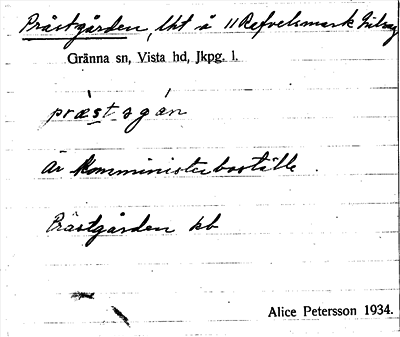 Prästgården, lht å 11 Refvelsmark
Gränna sn, Vista hd, Jkpg. l.
præ̀st a gán
är komministerboställe
Prästgården kb
Alice Petersson 1934.